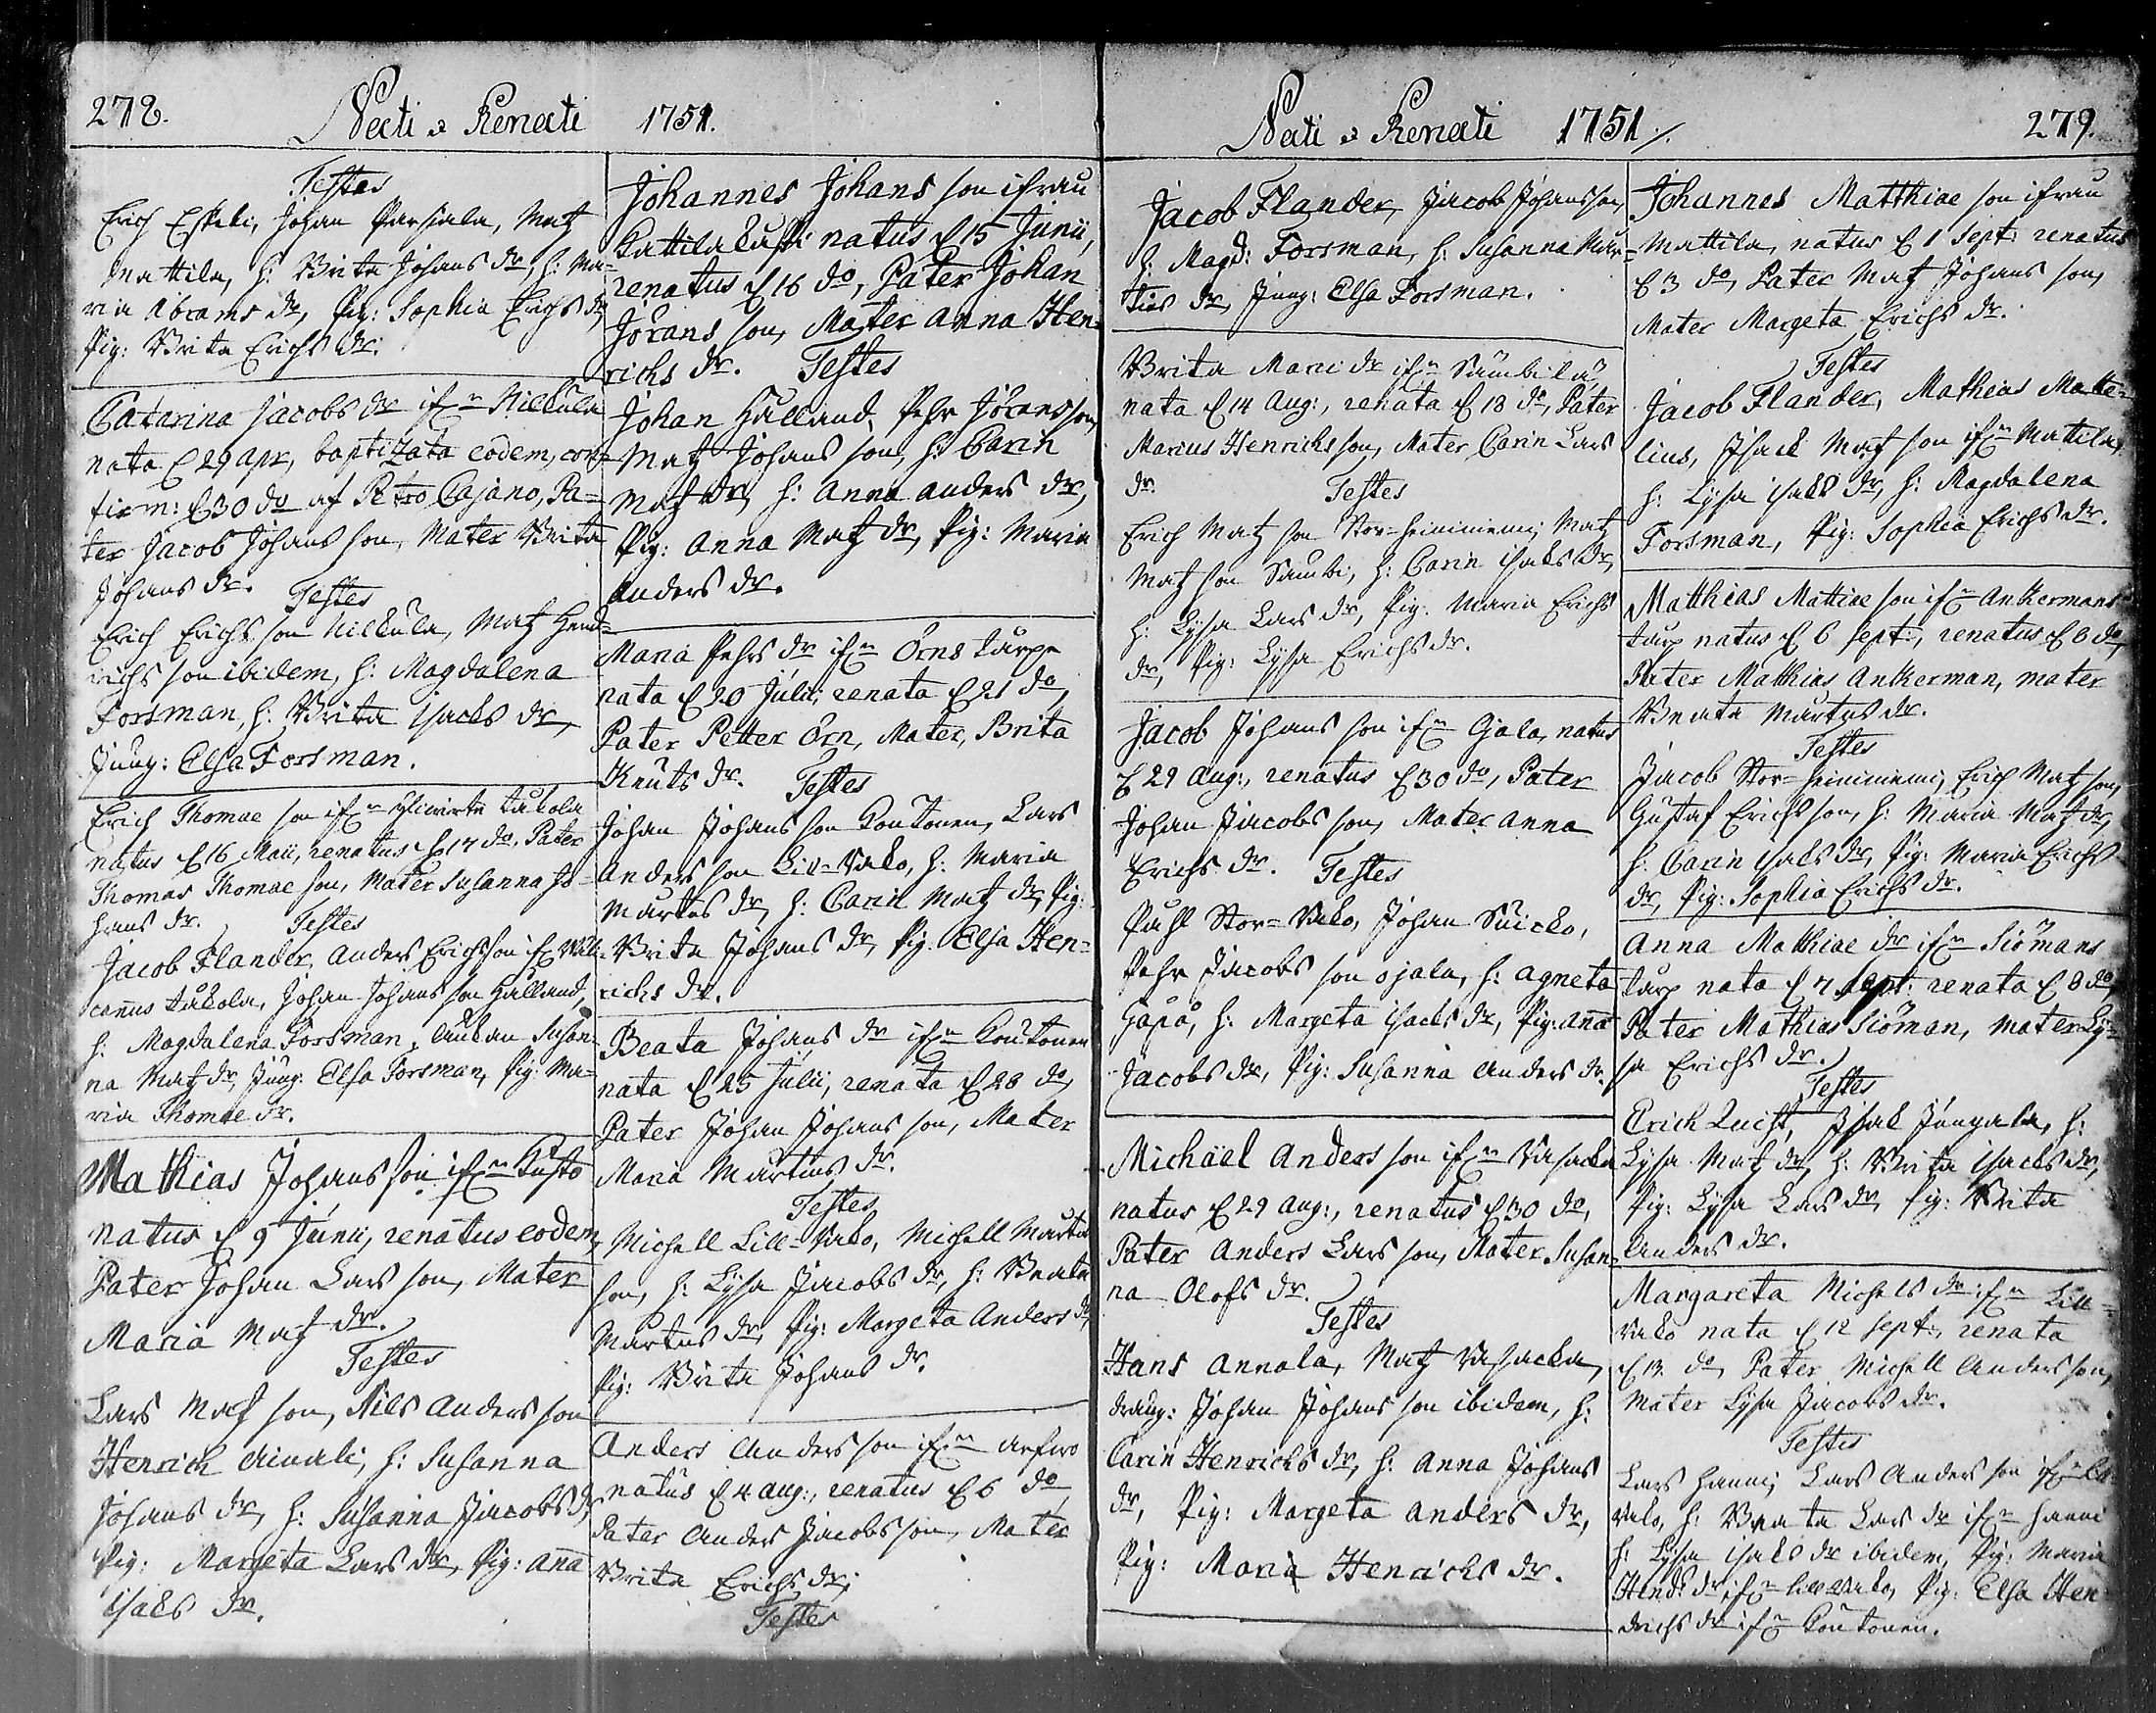 278.
Nati & Renati 1751.
Testes
Erich Eskeli, Johan Parsiala, Matz
Mattila, h: Brita Johans dr, h: Ma-
ria Abrams dr, Pig: Sophia Erichs dr,
Pig: Brita Erichs dr.
Catarina Jacobs dr ifrn Nilkula
nata d 29 Apr, baptizata eodem, con-
firm: d 30 do af Petro Cajano, Pa-
ter Jacob Johans son, Mater Brita
Johans dr. Testes
Erich Erichs son Nilkula, Matz Hend-
richs son ibidem, h: Magdalena
Forsman, h: Brita Isacks dr,
Jung: Elsa Forsman.
Erich Thomae son ifrn takola
natus d 16 Maii, renatus d 17 do. Pater
Thomas Thomae son, Mater Susanna Jo-
hans dr. Testes
Jacob Flander, Anders Erichsson ifrn
takola, Johan Johans son Hålland,
h: Magdalena Forsman, Enkan Susan-
na Matz dr, Jung: Elsa Forsman, Pig: Ma-
ria Thomae dr.
Mathias Johans son ifrn Kusto
natus d 9 Junii, renatus eodem,
Pater Johan Lars son, Mater
Maria Matz dr.
Testes
Lars Matz son, Nils Anders son
Henrich Ainali, h: Susanna
Johans dr, h: Susanna Jacobs dr,
Pig: Margeta Lars dr, Pig: Anna
Isaks dr.
Johannes Johans son ifrån
Kattilakoski natus d 15 Junii,
renatus d 16 do, Pater Johan
Jörans son, Mater Anna Hen-
richs dr. Testes
Johan Hålland, Pehr Jöransson,
Matz Johans son, h: Carin
Matz dr, h: Anna Anders dr,
Pig: Anna Matz dr, Pig: Maria
Anders dr.
Maria Pehrs dr ifrn Örns tårpe
nata d 20 Julii, renata d 21 do,
Pater Petter Örn, Mater, Brita
Knuts dr. Testes
Johan Johans son Kontonen, Lars
Anders son Lill-Vako, h: Maria
Martes dr, h: Carin Matz dr, Pig:
Brita Johans dr, Pig: Elsa Hen-
richs dr.
Beata Johans dr ifrn Kontonen
nata d 25 Julii, renata d 28 do,
Pater Johan Johans son, Mater
Maria Martins dr.
Testes
Michell Lill-Vako, Michell Martes
son, h: Lysa Jacobs dr, h: Beata
Martes dr, Pig: Margeta Anders dr,
Pig: Brita Johans dr.
Anders Anders son ifrn
natus d 4 Aug:, renatus d 6 do,
Pater Anders Jacobs son, Mater
Brita Erichs dr;
Testes
Nati & Renati 1751.
279.
Jacob Flander, Jacob Johansson,
h: Magd: Forsman, h: Susanna Mar-
tins dr, Jung: Elsa Forsman.
Brita Marci dr ifrn Sämbilä
nata d 14 Aug:, renata d 18 do, Pater
Marcus Henrichs son, Mater Carin Lars
dr. Testes
Erich Matz son Stor-heinimemi, Matz
Matz son Sämbi, h: Carin Isaks dr,
h: Lysa Lars dr, Pig: Maria Erichs
dr, Pig: Lysa Erichs dr.
Jacob Johans son ifrn Ojala, natus
d 29 Aug:, renatus d 30 do, Pater
Johan Jacobs son, Mater Anna
Erichs dr. Testes
Påhl Stor-Vako, Johan Suicko,
Pehr Jacobs son Ojala, h: Agneta
Håpå, h: Margeta Isacks dr, Pig: Anna
Jacobs dr, Pig: Susanna Anders dr.
Michäel Anders son ifrn Räsackä
natus d 29 Aug:, renatus d 30 do,
Pater Anders Lars son, Mater Susan-
na Olofs dr.
Testes
Hans Annala, Matz Räsackä,
dräng: Johan Johans son ibidem, h:
Carin Henrichs dr, h: Anna Johans
dr, Pig: Margeta Anders dr,
Pig: Maria Henrichs dr.
Johannes Matthiae son ifrån
Mattila, natus d 1 Sept: renatus
d 3 do, Pater Matz Johans son,
Mater Margeta Erichs dr.
Testes
Jacob Flander, Mathias Matte-
lius, Isack Matz son ifrn Mattila,
h: Lysa Isaks dr, h: Magdalena
Forsman, Pig: Sophia Erichs dr.
Matthias Mattiae son ifrn Ankermans
tårp natus d 6 Sept:, renatus d 8 do,
Pater Matthias Ankerman, mater
Beata Martes dr.
Testes
Jacob Stor-heinimemi, Erich Matz son,
Gustaf Erichsson, h: Maria Matz dr,
h: Carin Isaks dr, Pig: Maria Erichs
dr, Pig: Sophia Erichs dr.
Anna Matthiae dr ifrn Siömans
tårp nata d 7 Sept: renata d 8 do,
Pater Mathias Siöman, mater Ly-
sa Erichs dr.
Testes
Erich Lucht, Isak Jungala, h:
Lysa Matz dr, h: Brita Isacks dr,
Pig: Lysa Lars dr, Pig: Brita
Anders dr.
Margareta Michels dr ifrn Lill-
Vako nata d 12 Sept:, renata
d 13 do, Pater Michell Anders son,
Mater Lysa Jacobs dr.
Testes
Lars Hanni, Lars Anders son ifrn Lill-
Vako, h: Beata Lars dr ifrn Hanni
h: Lysa Isaks dr ibidem, Pig: Maria
Hend: dr, ifrn Lill Vako, Pig: Elsa Hen-
drichs dr ifrn Kontonen.